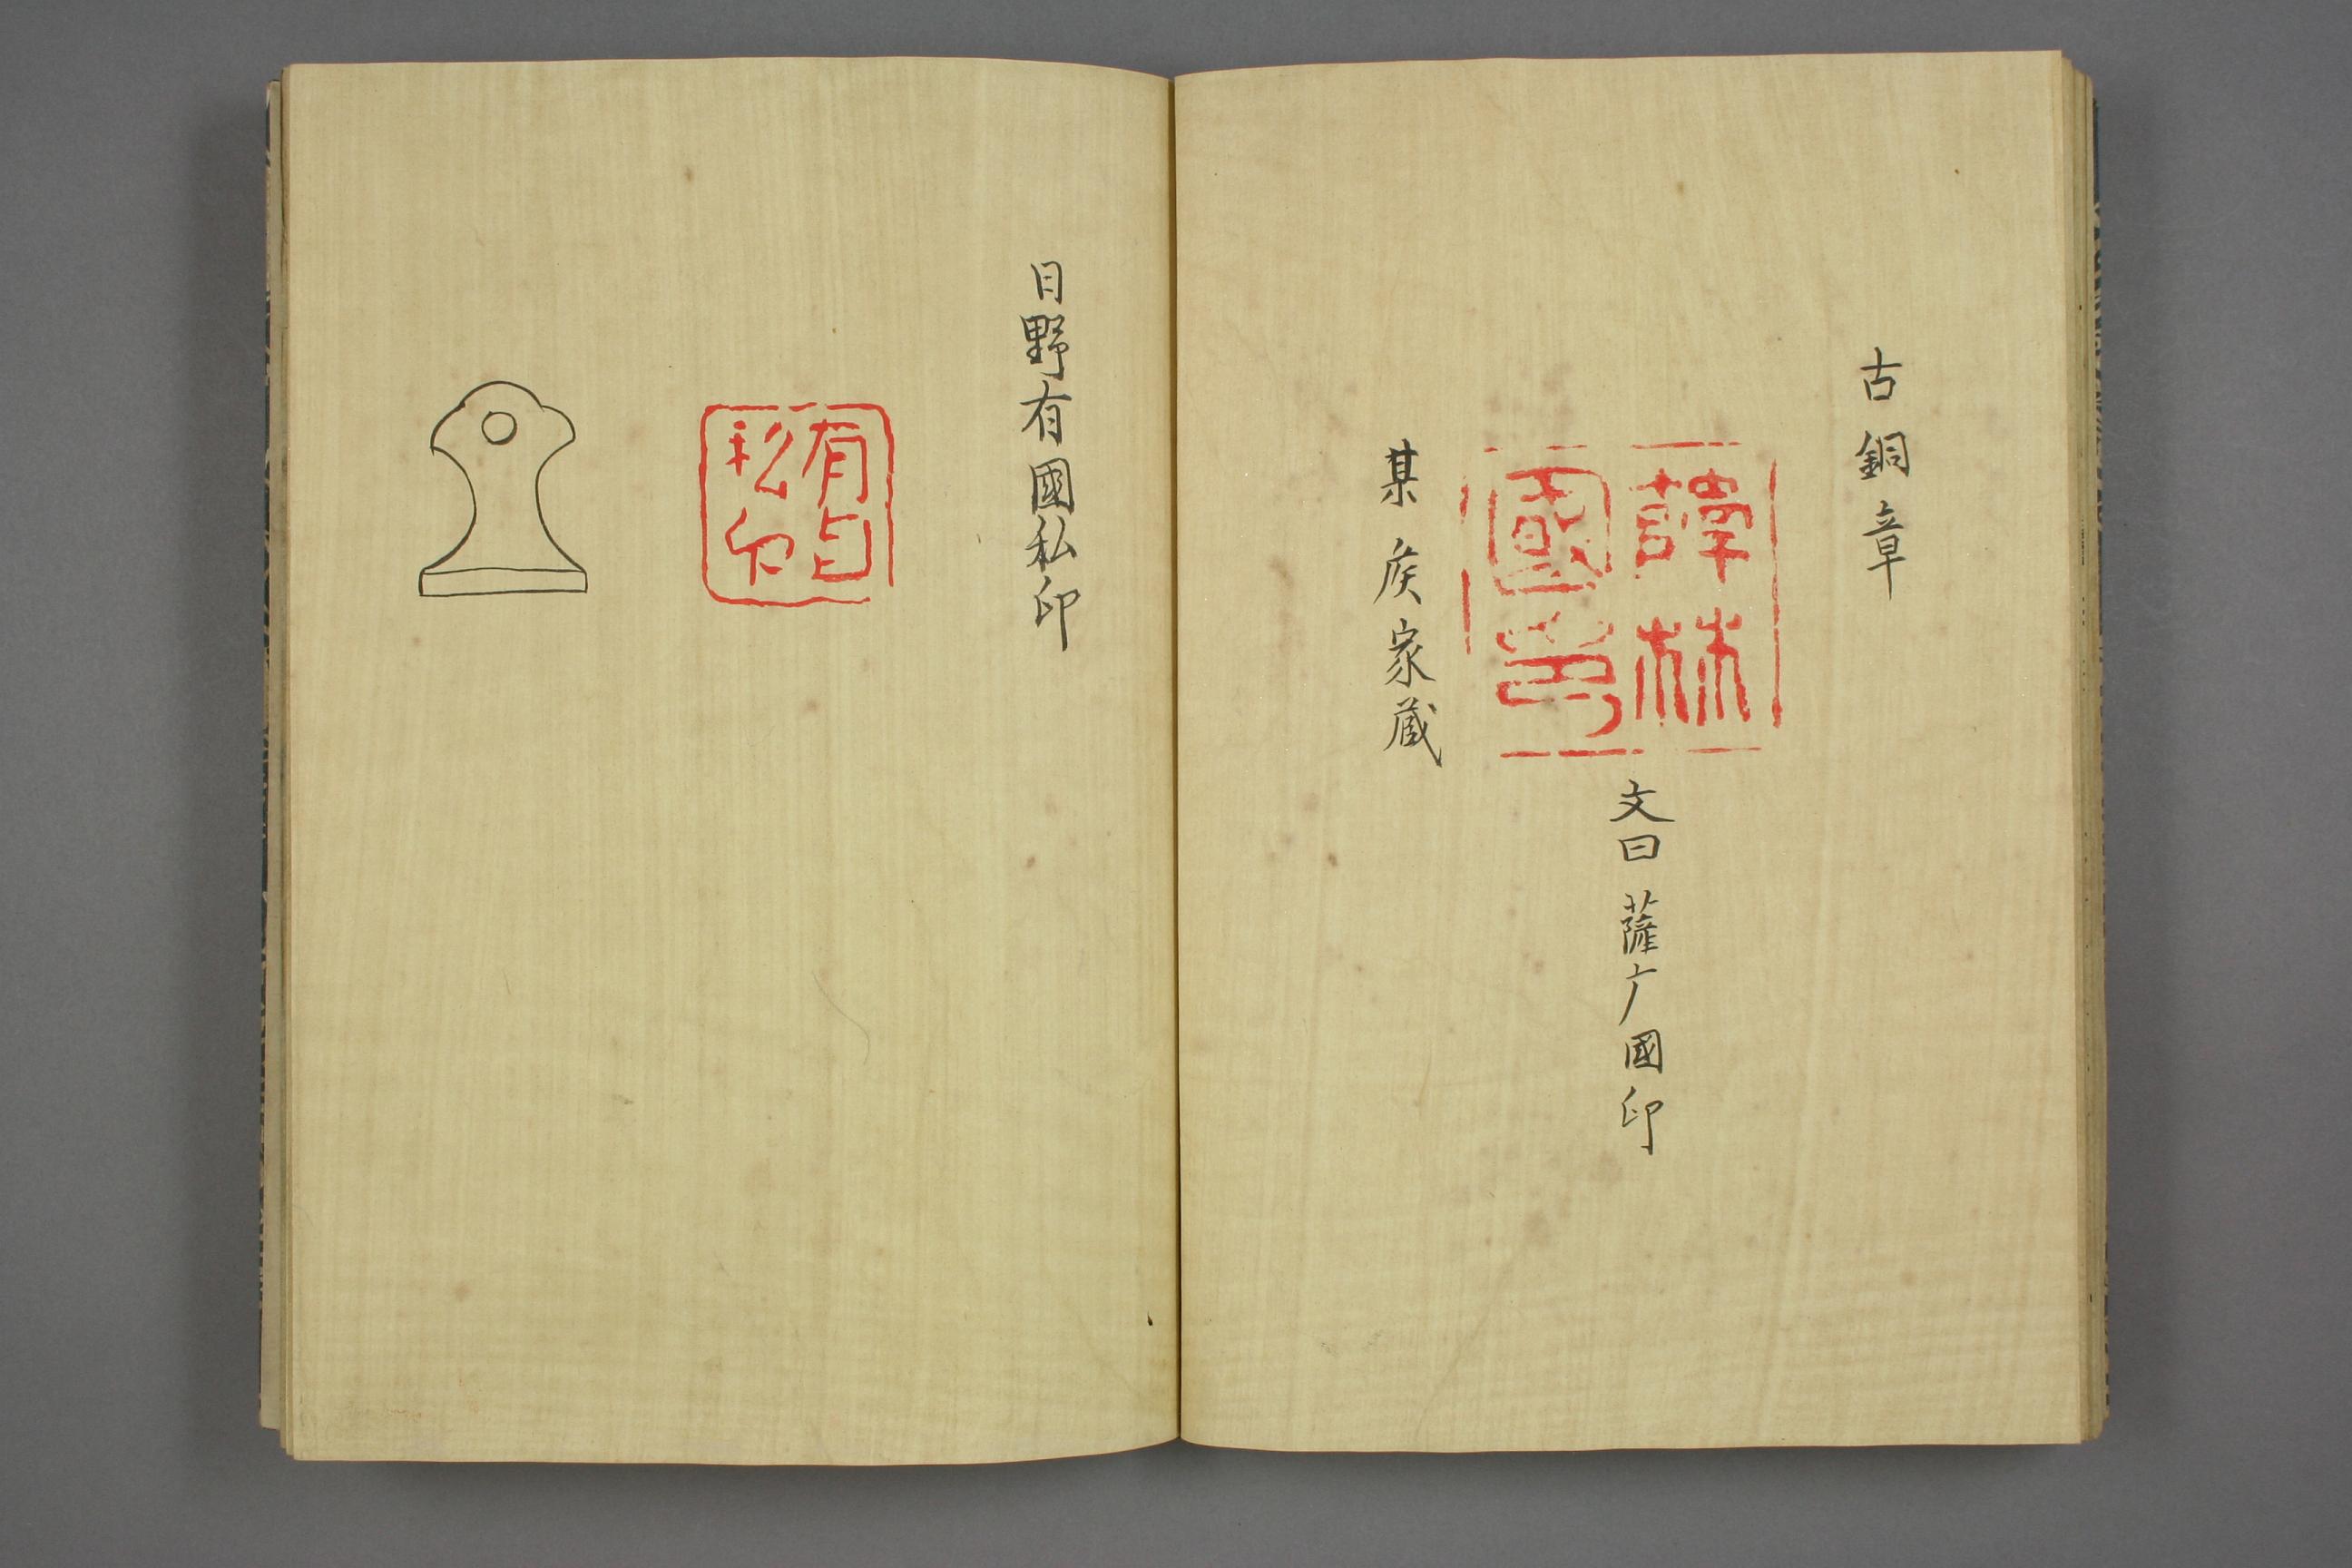 古銅章
國印
文曰薩广國印
某侯家蔵
日野有國私印
有国
私印